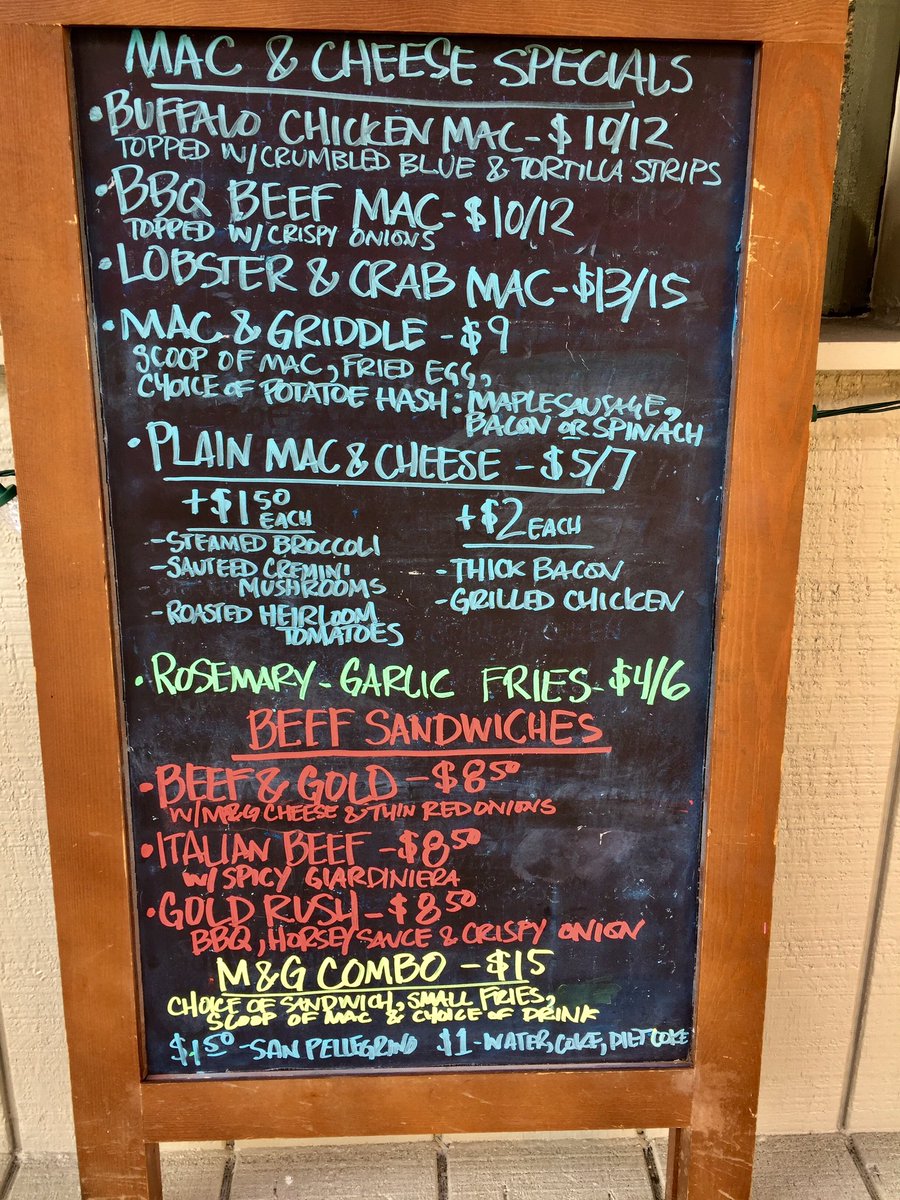 MAC & CHEESE SPECIALS
• BUFFALO CHICKEN MAC - $10/12
TOPPED W/ CRUMBLED BLUE & TORTILLA STRIPS
• BBQ BEEF MAC - $10/12
TOPPED W/ CRISPY ONIONS
• LOBSTER & CRAB MAC - $13/15
• MAC & GRIDDLE - $9
SCOOP OF MAC, FRIED EGG,
CHOICE OF POTATOE HASH: MAPLE SAUSAGE,
BACON OR SPINACH
• PLAIN MAC & CHEESE - $5/7
+$1.50 EACH
- STEAMED BROCCOLI
- SAUTEED CREMINI
MUSHROOMS
- ROASTED HEIRLOOM
TOMATOES
+$2 EACH
- THICK BACON
- GRILLED CHICKEN
• ROSEMARY-GARLIC FRIES - $4/6
BEEF SANDWICHES
• BEEF & GOLD - $8.50
W/ M&G CHEESE & THIN RED ONIONS
• ITALIAN BEEF - $8.50
W/ SPICY GIARDINIERA
• GOLD RUSH - $8.50
BBQ, HORSEY SAUCE & CRISPY ONION
M&G COMBO - $15
CHOICE OF SANDWICH, SMALL FRIES,
SCOOP OF MAC & CHOICE OF DRINK
$1.50 - SAN PELLEGRINO $1 - WATER, COKE, DIET COKE